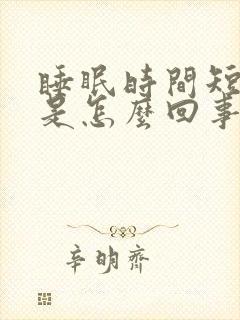 睡眠時間短
是怎麼回事
辛明齊